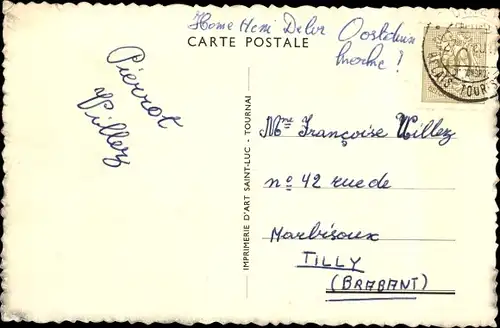 Home Heni Delor Oostduin
CARTE POSTALE
Pierrot
Villez
IMPRIMERIE D'ART SAINT-LUC - TOURNAI
RELAIS TOURIS
Mme Françoise Willez
n° 42 rue de
Marbisoux
TILLY
(BRABANT)